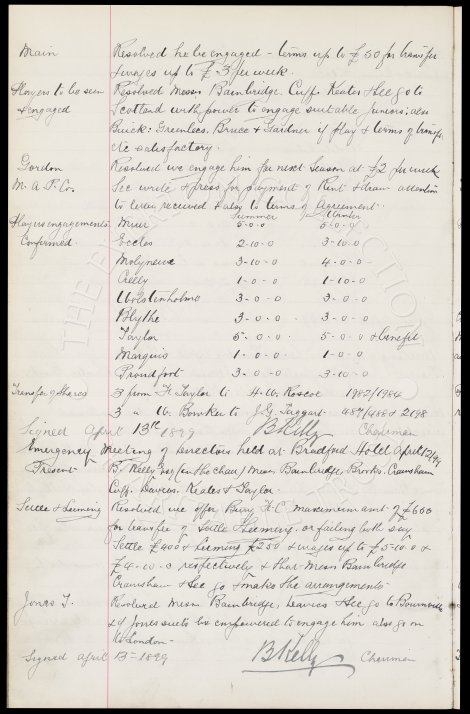 Main Resolved he be engaged - terms up to £50 for transfer
& wages up to £3 per week.
Players to be seen Resolved Messrs Bainbridge. Cuff. Keates & Sec go to
& engaged Scotland with power to engage suitable Juniors; also
Buick: Greenlees, Bruce & Gardner if play & terms of transfer
etc satisfactory.
Gordon Resolved we engage him for next Season at £2 per week
M. A. P. Co. Sec write & press for payment of Rent & draw attention
to letter received & also to terms of Agreement.
Summer Winter
Players engagements Muir 5-0-0 5-0-0
Confirmed. Eccles 2-10-0 3-10-0
Molyneux 3-10-0 4-0-0
Crelly 1-0-0 1-10-0
Wolstenholme 3-0-0 3-0-0
Blythe 3-0-0 3-0-0
Taylor 5-0-0 5-0-0 & benefit
Marquis 1-0-0 1-0-0
Proudfoot 3-0-0 3-10-0
Transfer of Shares 3 from H. Taylor to H. W. Roscoe 1982/1984
3 " W. Bowker to J. G. Taggart 487/488 & 2198
Signed April 13th 1899 B Kelly Chairman
Emergency Meeting of Directors held at Bradford Hotel April 12/99
Present B. Kelly Esq (in the chair) Messrs Bainbridge, Brooks. Crawshaw
Cuff. Davies. Keates & Taylor
Settle & Leeming Resolved we offer Bury F.C. maximum amt of £600
for transfer of Settle & Leeming, or failing both say
Settle £400 & Leeming £250 & wages up to £5-10-0 &
£4-10-0 respectively & that Messrs Bainbridge
Crawshaw & Sec go & make the arrangements
Jones T. Resolved Messrs Bainbridge, Davies & Sec go to
& if Jones suits be empowered to engage him also go on
to London -
Signed April 13 - 1899 B Kelly Chairman